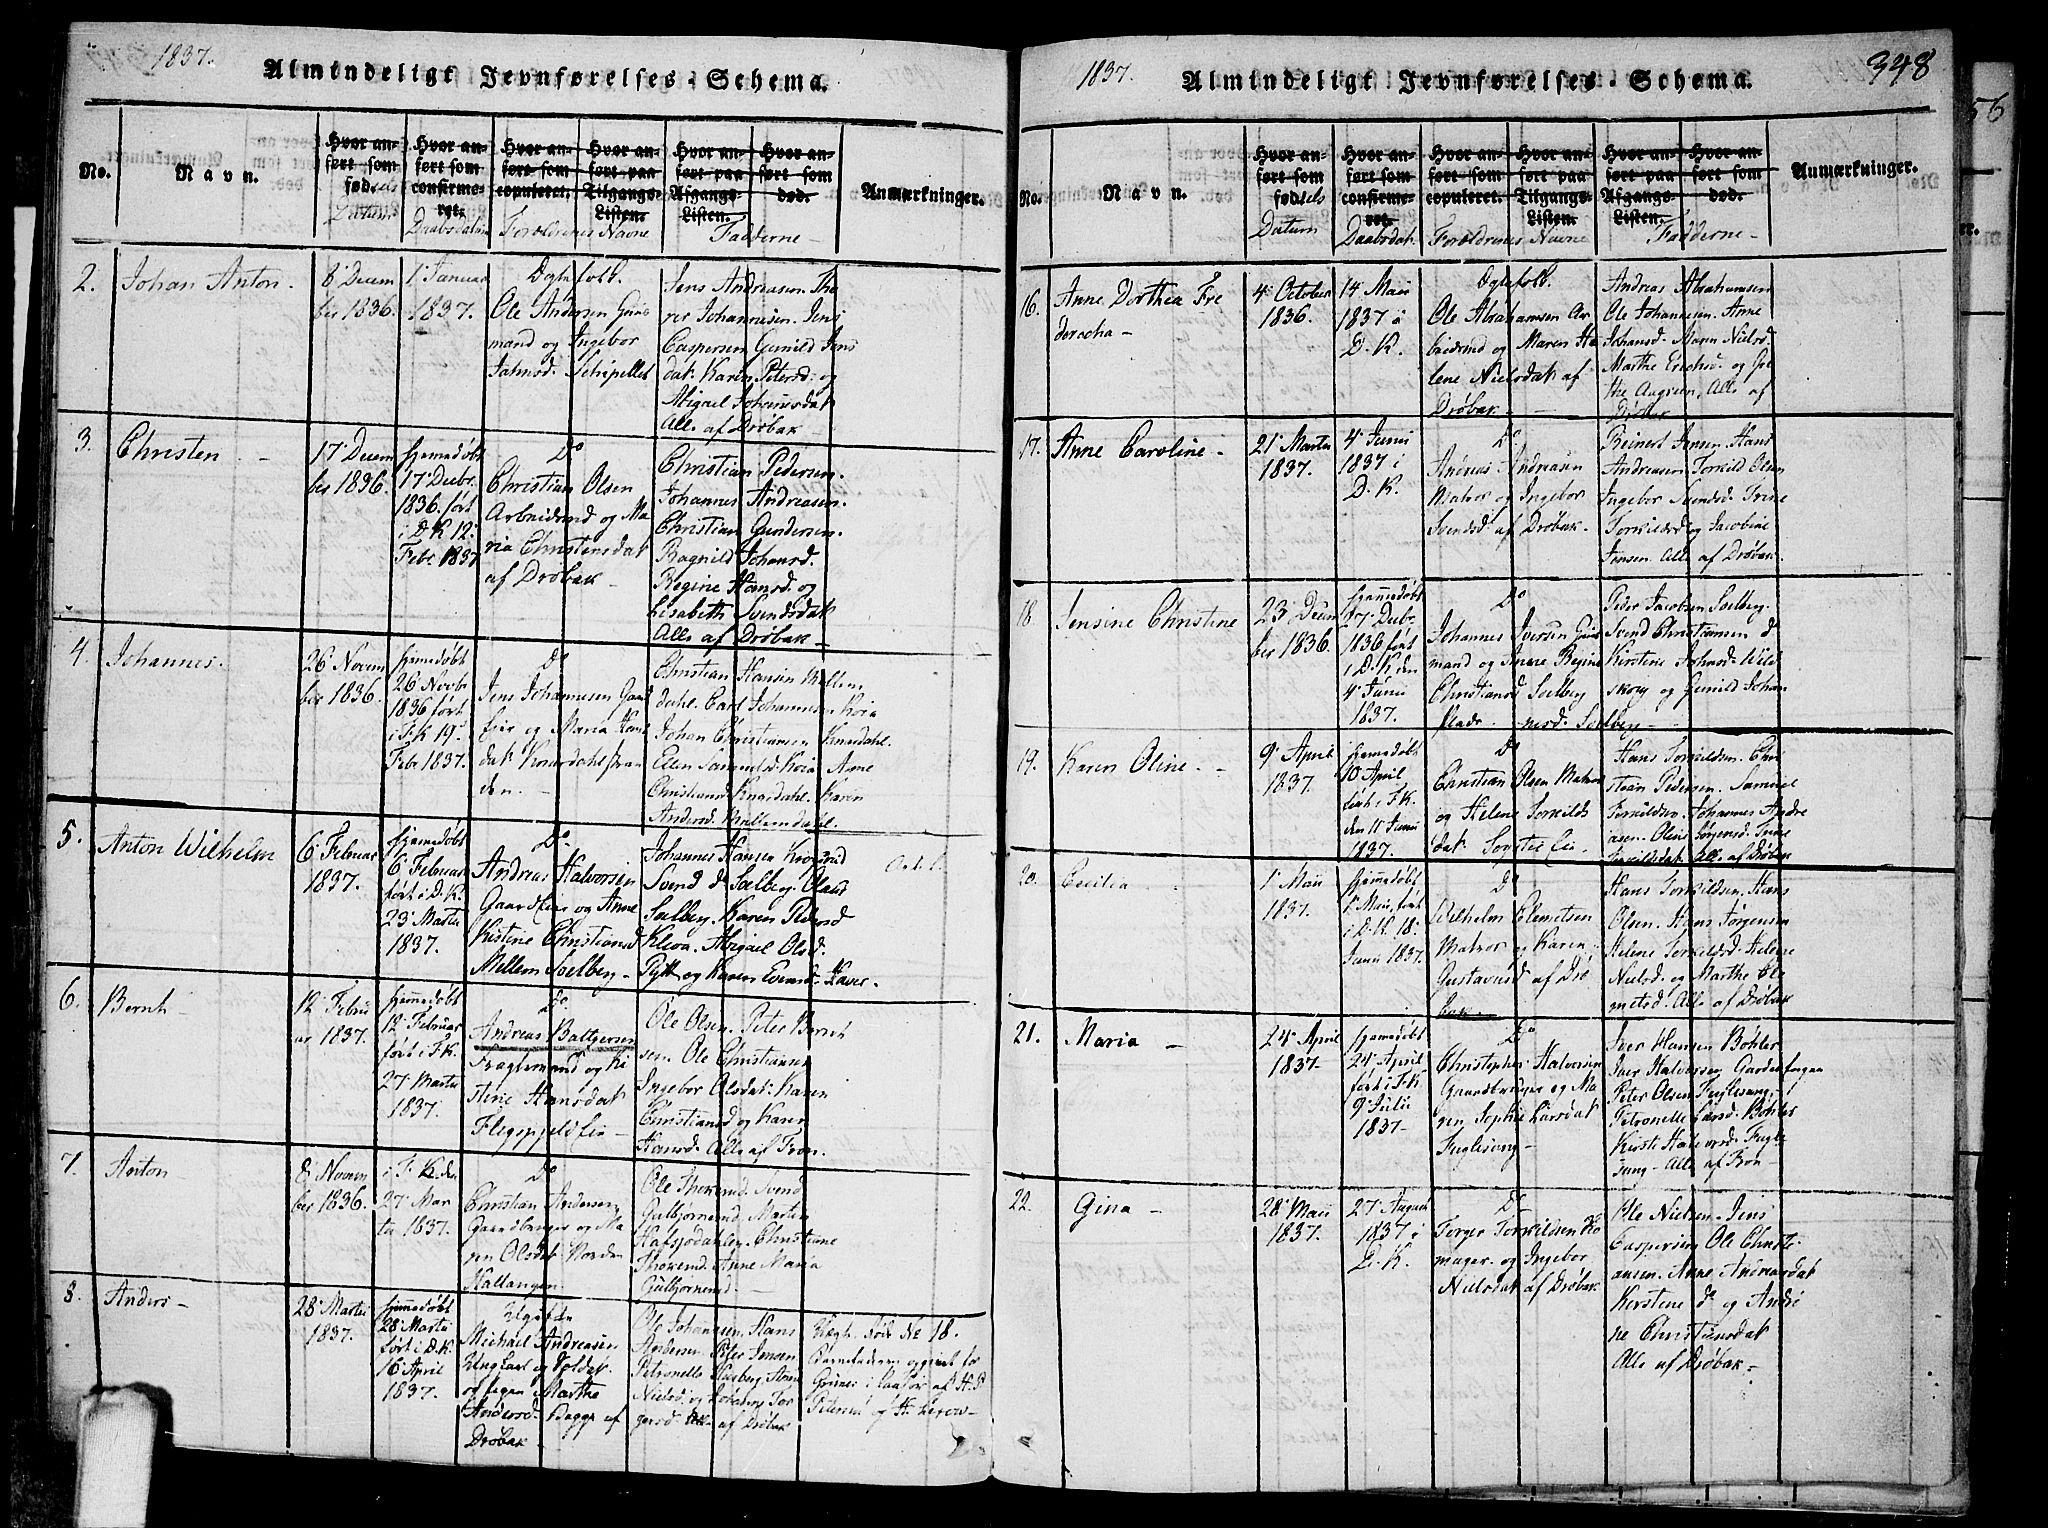 1837.
Almindeligt Jevnførelses-Schema.
No.
Navn.
Hvor anført som fødsels Datum
Hvor anført som confirmeret. Daabsdatum
Hvor anført som copuleret.
Hvor anført paa Tilgangs-Listen.
Forældrenes Navne
Hvor anført paa Afgangs-Listen.
Hvor anført som død.
Fadderne
Anmærkninger.
2.
Johan Anton.
8 Decem
ber 1836.
1 Januar
1837.
Ægtefolk.
Ole Andersen
mand og Ingebor
Jahnsd.
Jens Andreasen
Johannesen. Jens
Caspersen Gunild Jens
dat. Karen Petersd. og
Abigael Johannesdat
Alle af Drøbak
3.
Christen
17 Decem
ber 1836.
hjemedøbt
17 Decbr.
1836. ført
i D.K 12
Febr. 1837
Do
Christian Olsen
Arbeidsmd og Ma
ria Christensdat
af Drøbak
Christian Pedersen.
Johannes Andreasen.
Christian Gundersen.
Ragnild Johansd.
Regine Hansd. og
Lisabeth Svendsdat
Alle af Drøbak
4.
Johannes.
26 Novem
ber 1836.
hjemedøbt
26 Novbr
1836 ført
i F.K 19
Febr 1837.
Do
Jens Johannesen Gaard
eier og Maria Hans
dat
den.
Christian Hansen Mellem
dahl. Carl Johannesen
Johan Christiansen Knardahl.
Ellen Samuelsd. Anne
Christiansd Knardahl. Karen
Andersd. Mellemdahl.
5.
Anton Wilhelm
6 Februar
1837.
hjemedøbt
6 Februar
ført i D.K.
23 Martii
1837.
Do
Andreas Halvorsen
Gaardeier og Anne
Kistine Christiansd
Mellem Solberg
Johannes Hansen
Svend do Solberg. Olaus
Solberg. Karen Pedersd
Kleva. Abigael Olsd.
og Karen
6.
Bernt
12 Febru
ar 1837.
hjemedøbt
12 Februar
ført i F.K.
27 Martii
1837.
Do
Andreas Baltzersen
og Ki
stine Hansdat
Ole Olsen. Peter Bernt
sen. Ole Christiansen
Ingebor Olsdat. Karen
Christiansd og Karen
Hansd. Alle af Fron.
7.
Anton
8 Novem
ber 1836.
i F.K. den
27 Mar
tii 1837.
Do
Christian Andersen
Gaardbruger og Ma
ren Olsdat Norden
Hallangen
Ole Svend
Gulbjørnsrud. Morten
Christiane
Anne Maria
Gulbjørnsrud.
8.
Anders
28 Martii
1837.
hjemmedøbt
28 Martii
ført i D.K.
16 April
1837.
Ugifte
Michael Andreasen
Ungkarl og
og Pigen Marthe
Andersd. Bagge af
Drøbak
Ole Johannsen, Hans
Andersen Peter Jensen
Petronelle
Nielsd. og
gersd. Alle af Drøbak
No 18.
Barnefaderen opgivet for
1837.
Almindeligt Jevnførelses-Schema.
348
56
No.
Navn.
Hvor anført som fødsels Datum
Hvor anført som confirmeret. Daabsdat.
Hvor anført som copuleret.
Hvor anført paa Tilgangs-Listen.
Forældrenes Navne
Hvor anført paa Afgangs-Listen.
Hvor anført som død.
Fadderne
Anmærkninger.
16.
Anne Dorthea Fre
dericha
4 October
1836.
14 Maii
1837 i
D.K.
Ægtefolk.
Ole Abrahamsen Ar
beidsmd og Maren He
lene Nielsdat af
Drøbak
Andreas Abrahamsen
Ole Johannesen. Anne
Johansd. Maren Nielsd.
Marthe Erichsd. og
Alle af
Drøbak
17.
Anne Caroline
21 Martii
1837.
4 Junii
1837 i
D.K.
Do
Andreas Andreasen
Matros og Ingebor
Svendsd. af Drøbak.
Reinert Jensen. Hans
Andreasen. Torkild Olsen
Ingebor Svendsd. Trine
Torkildsd og Jacobine
Jensen. Alle af Drøbak.
18.
Jensine Christine
23 Decem
ber 1836.
hjemmedøbt
27 Decbr.
1836 ført
i D.K den
4 Junii
1837.
Do
Johannes Iversen
mand og Anne Regine
Christiansd Solberg
Peder Jacobsen Solberg.
Svend Christiansen do
Kirstine Johnsd. Wild
skoug og Gunild Johan
nesd. Solberg
19.
Karen Oline.
9 April
1837.
hjemedøbt
10 April
ført i F.K.
den 11 Junii
1837.
Do
Christian Olsen Matros
og Helene Torkilds
dat
Hans Torkildsen. Chri
stian Pedersen. Samuel
Torkildsen. Johannes Andre
asen. Oline Jørgensd. Trine
Torkildsdat. Alle af Drøbak
20.
Cecilia
1 Maii
1837.
hjemmedøbt
1 Maii, ført
i D.K. 18
Junii 1837.
Do
Wilhelm Clemetsen
Matros og Karen
Gustavusd af Drø
bak
Hans Torkildsen. Hans
Olsen. Hans Jørgensen
Helene Torkildsd. Helene
Nielsd. og Marthe Cle
metsd. Alle af Drøbak
21.
Maria
24 April
1837
hjemedøbt
24 April
ført i F.K
9 Julii
1837
Do
Christopher Halvorsen
Gaardbruger og Ma
ren Sophie Larsdat
Fuglesang
Iver Hansen Bøhler
Iver Halvorsen
Peter Olsen Fuglesang.
Petronelle Larsd. Bøhler
Kirsti Halvorsd. Fugle
sang. Alle af Fron
22.
Gina
28 Maii
1837.
27 August
1837 i
D.K.
Do
Torger Torkildsen
og Ingebor
Nielsdat af Drøbak
Ole Nielsen. Jens
Caspersen Ole Christi
ansen. Anne Andreasdat
Kirstene do og Andri
ne Christiansdat
Alle af Drøbak